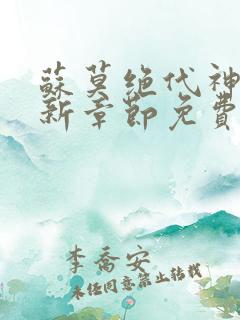 蘇莫絕代神
新章節免費
李喬安
未經同意禁止轉載